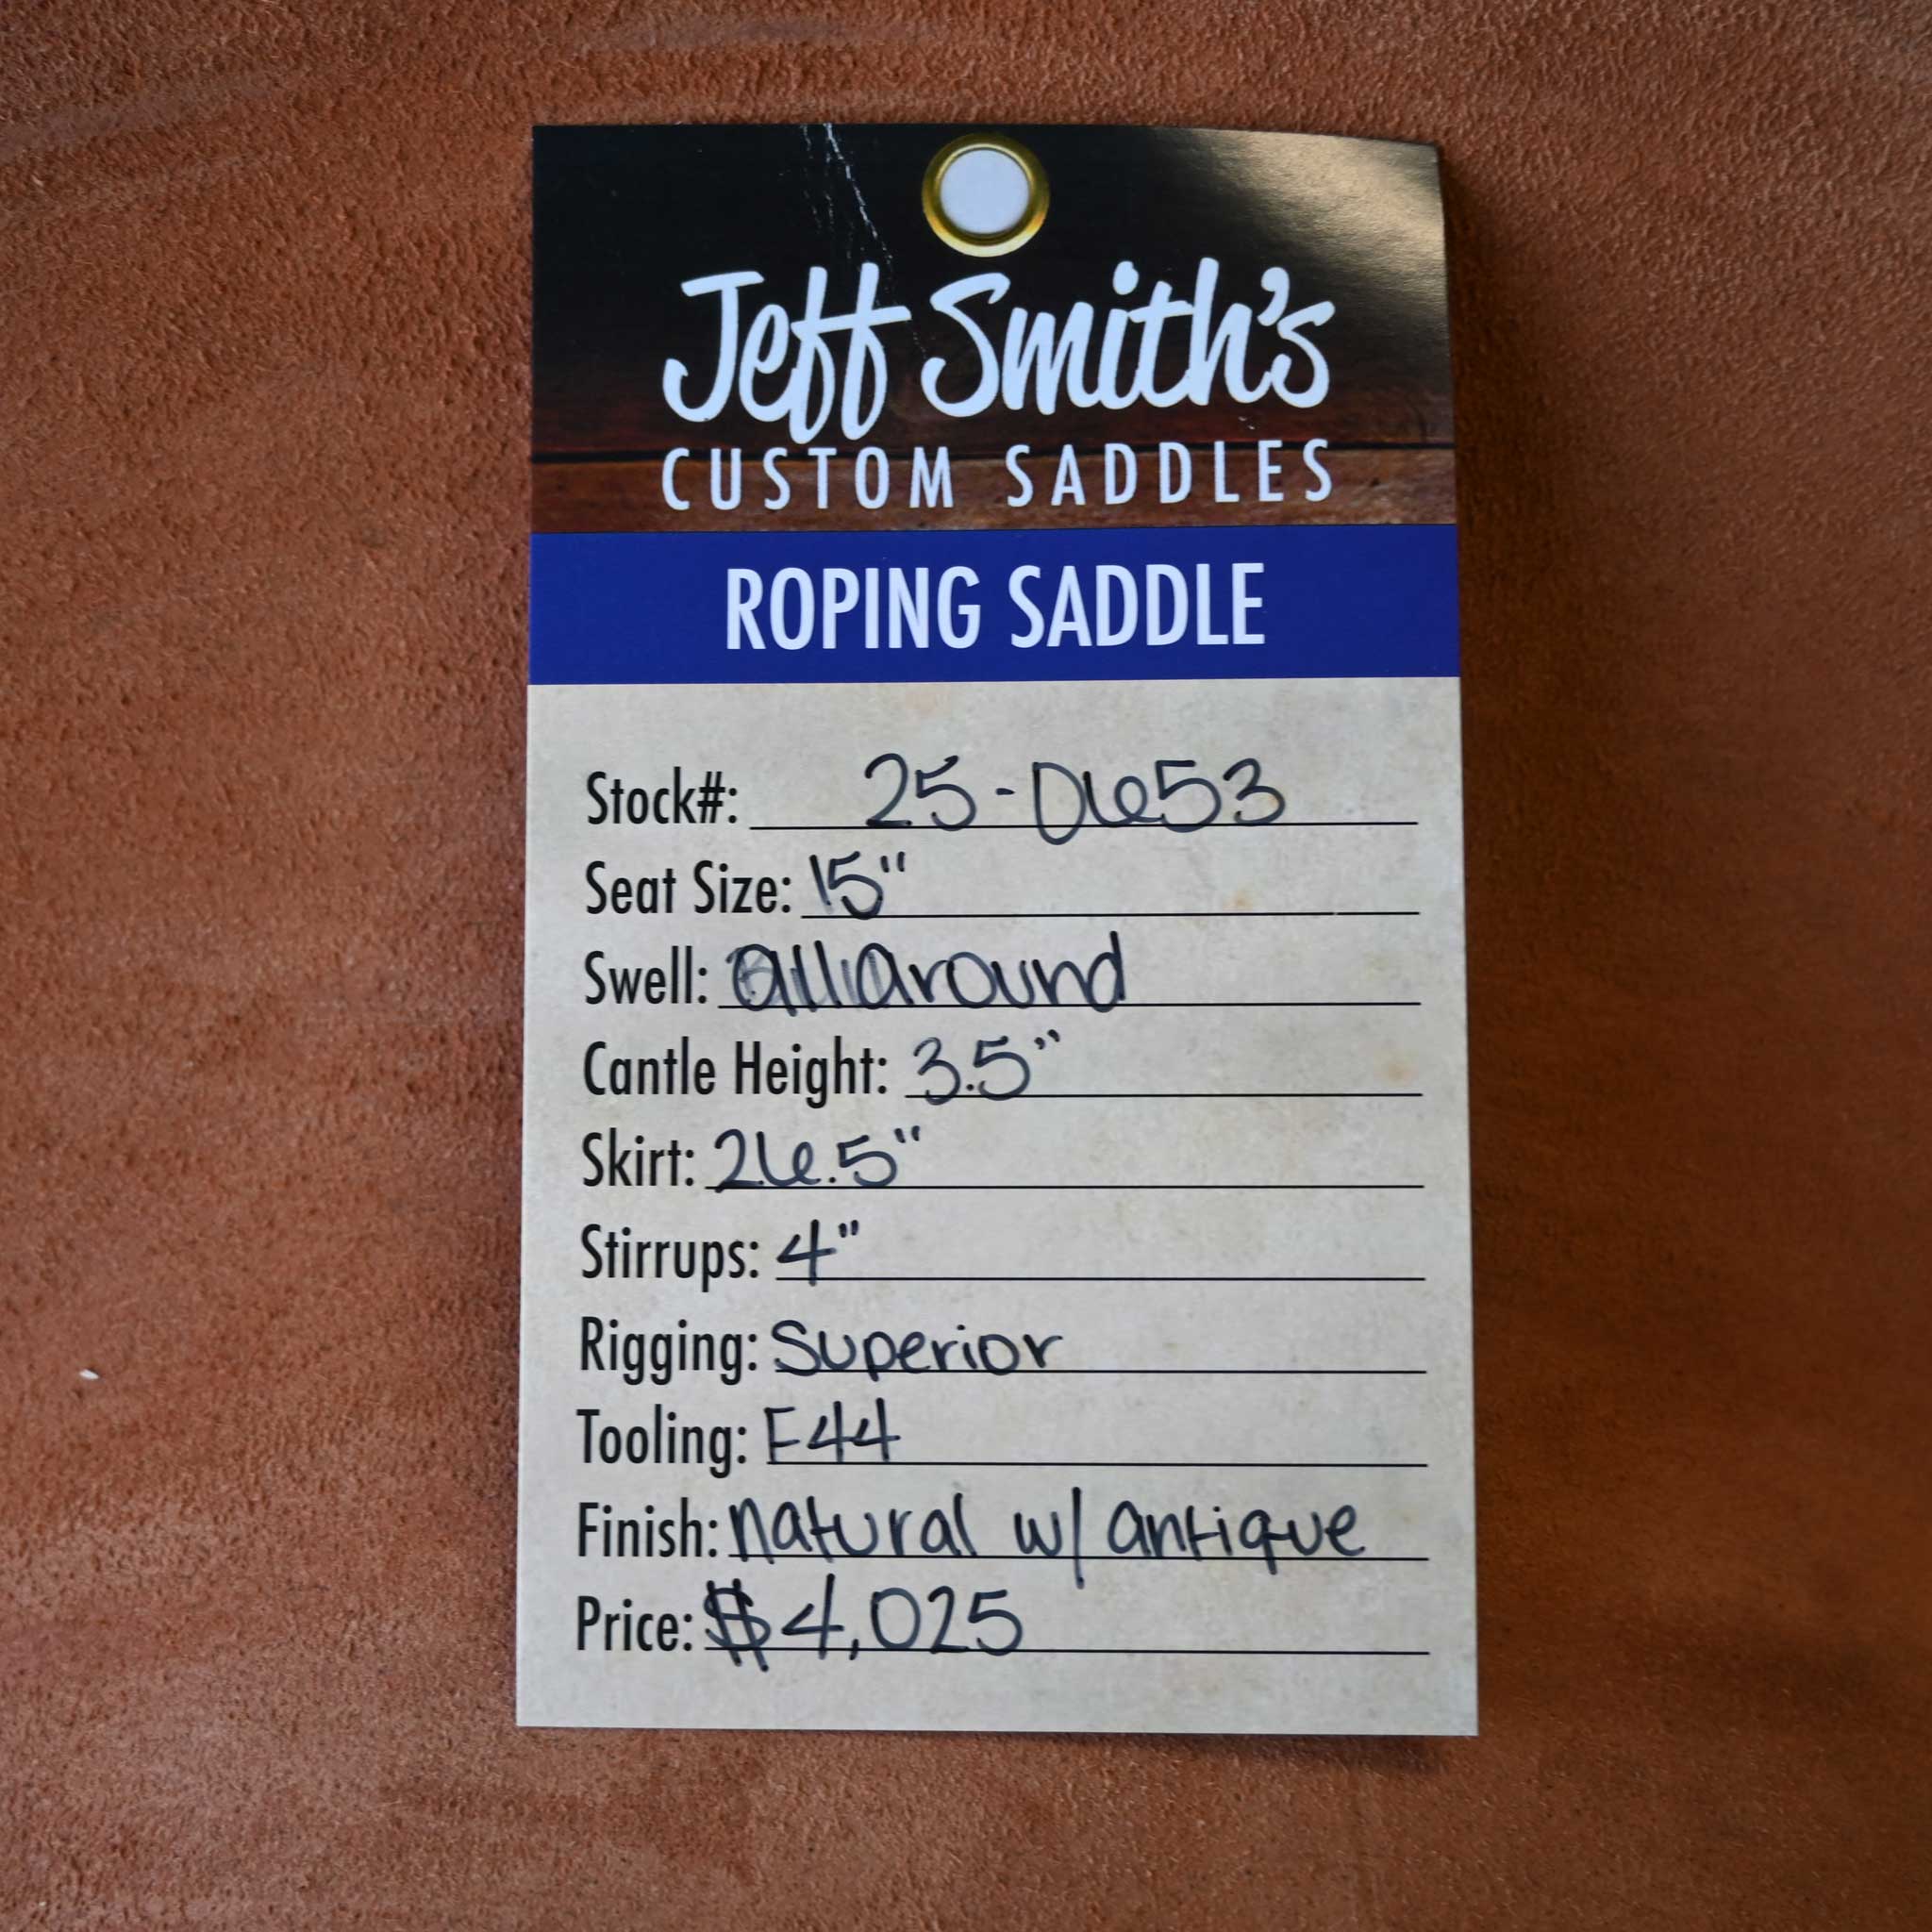 Jeff Smith's
CUSTOM SADDLES
ROPING SADDLE
Stock#: 25-0653
Seat Size: 15"
Swell: allaround
Cantle Height: 3.5"
Skirt: 26.5"
Stirrups: 4"
Rigging: Superior
Tooling: F44
Finish: natural w/ antique
Price: $4,025